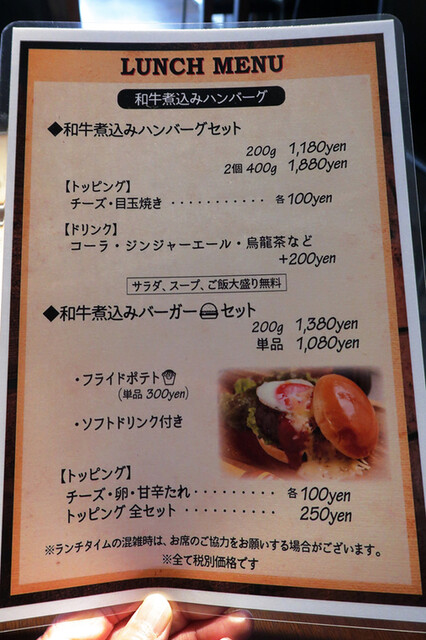 LUNCH MENU
和牛煮込みハンバーグ
◆和牛煮込みハンバーグセット
200g 1,180yen
2個 400g 1,880yen
【トッピング】
チーズ・目玉焼き ・・・・・・・・・・・ 各100yen
【ドリンク】
コーラ・ジンジャーエール・烏龍茶など
+200yen
サラダ、スープ、ご飯大盛り無料
◆和牛煮込みバーガーセット
200g 1,380yen
単品 1,080yen
・フライドポテト
(単品 300yen)
・ソフトドリンク付き
【トッピング】
チーズ・卵・甘辛たれ ・・・・・・・・・ 各100yen
トッピング 全セット ・・・・・・・・・・ 250yen
※ランチタイムの混雑時は、お席のご協力をお願いする場合がございます。
※全て税別価格です